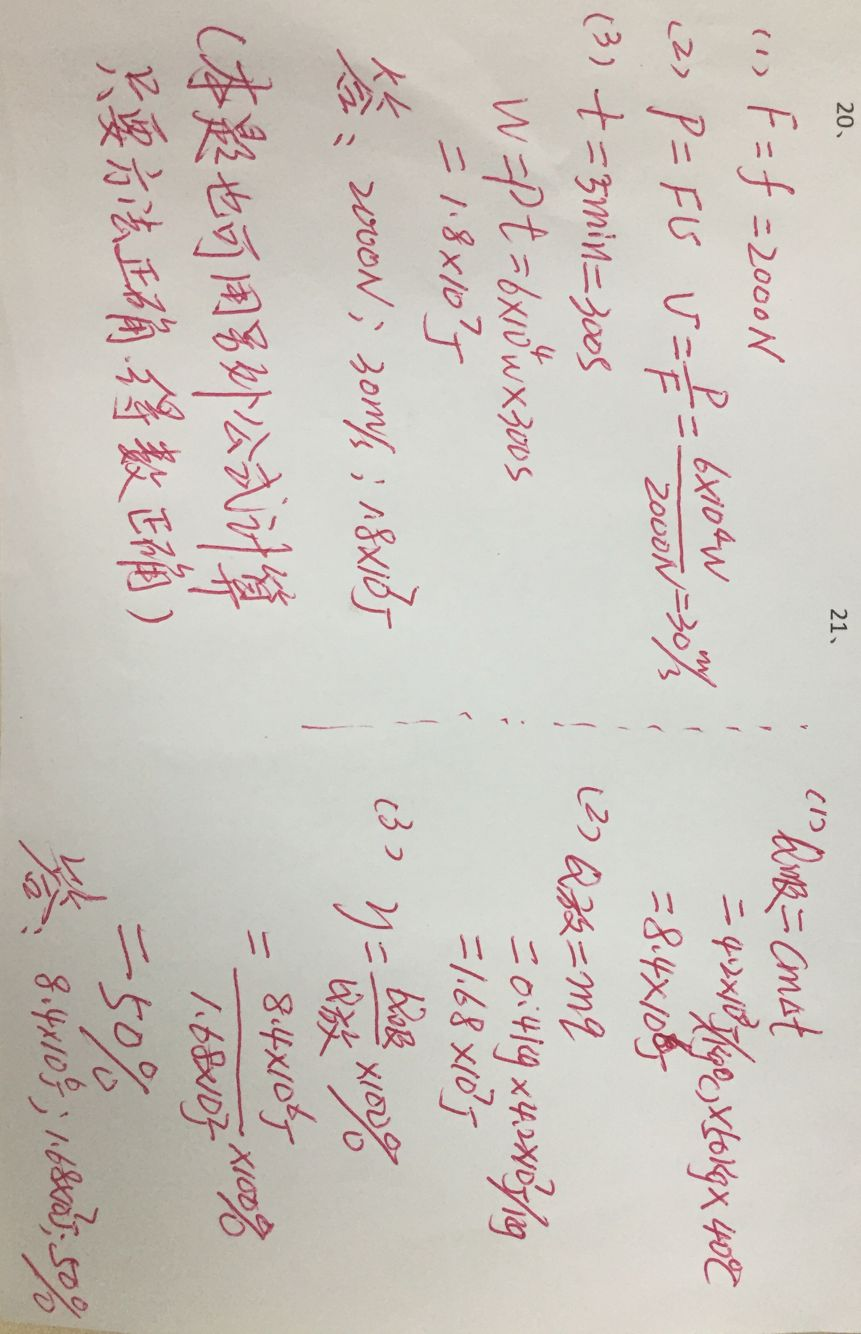 20、
(1) F=f=2000N
(2) P=Fv v=P/F=6×10⁴W/2000N=30m/s
(3) t=5min=300s
W=Pt=6×10⁴W×300s
=1.8×10⁷J
答：2000N；30m/s；1.8×10⁷J
(本题也可用另外公式计算
只要方法正确.得数正确)
21、
(1) Q吸=cmΔt
=4.2×10³J/(kg℃)×50kg×40℃
=8.4×10⁶J
(2) Q放=mq
=0.4kg×4.2×10⁷J/kg
=1.68×10⁷J
(3) η=Q吸/Q放×100%
=8.4×10⁶J/1.68×10⁷J×100%
=50%
答：8.4×10⁶J；1.68×10⁷J；50%